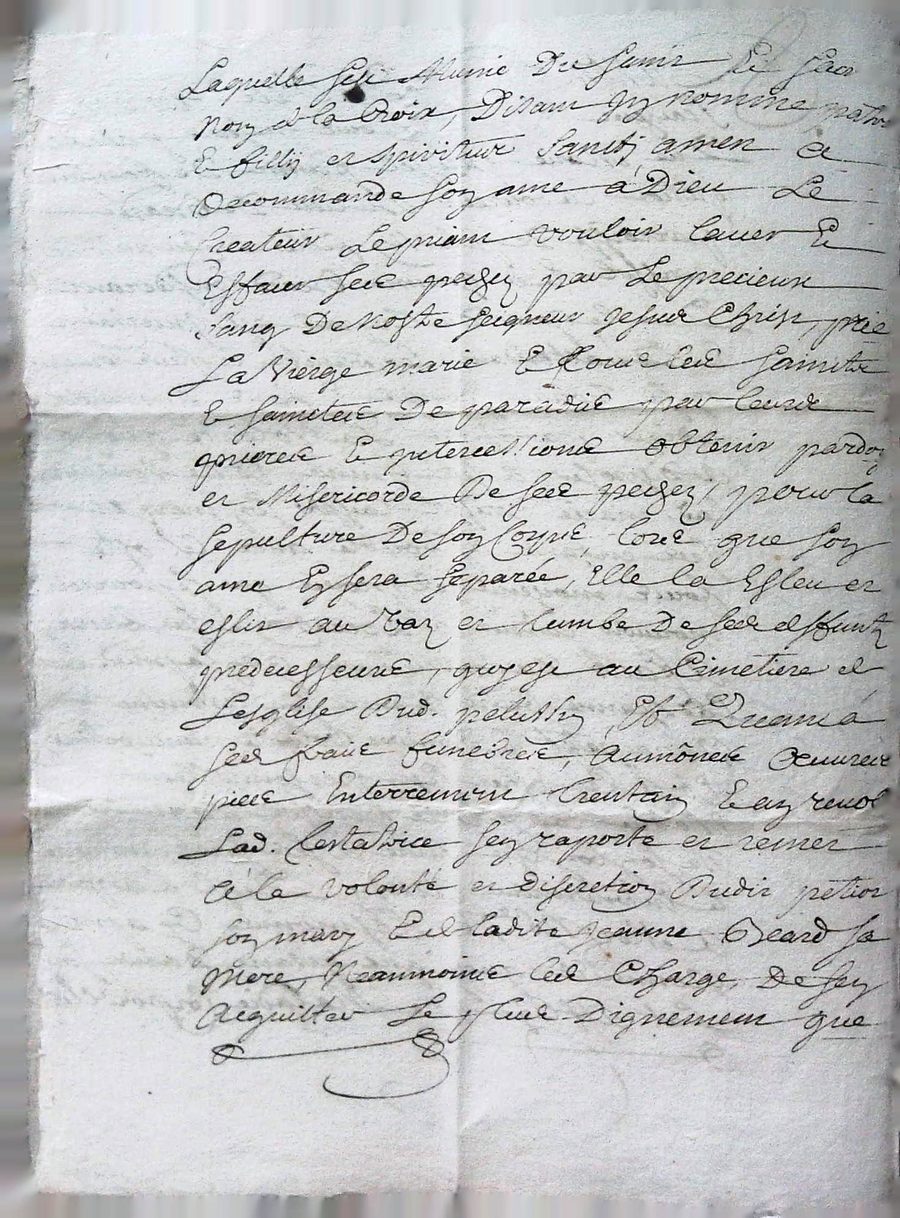 Laquelle sest Munie Du signe
de la Croix, Disant In nomine patris
E fillij et spiritus Sancti amen a
Recommande son ame a Dieu Le
Createur Le priant vouloir laver E
Effacer ses pechez par Le precieux
sang De Nostre seigneur Jesus Christ, prie
La Vierge marie E tous les saincts
E sainctes De paradis par leurs
prieres E intercessions obtenir pardon
et Misericorde De ses pechez, pour la
sepulture De son Corps, lors que son
ame En sera separée, Elle la Esleu et
eslit au Vaz et tumbe De ses deffuntz
predecesseurs, au Cimetiere de
Lesglise Dud. pelussin Et Quant a
ses frais funebres, aumônes oeuvres
pies Enterrement trentain E annuel
Lad. testatrice sen raporte et remet
a la volonté et discretion Dudit
son mary E de ladite Jeanne sa
Mere, Neanmoins les Charge, De sen
Acquitter Le plus Dignement que